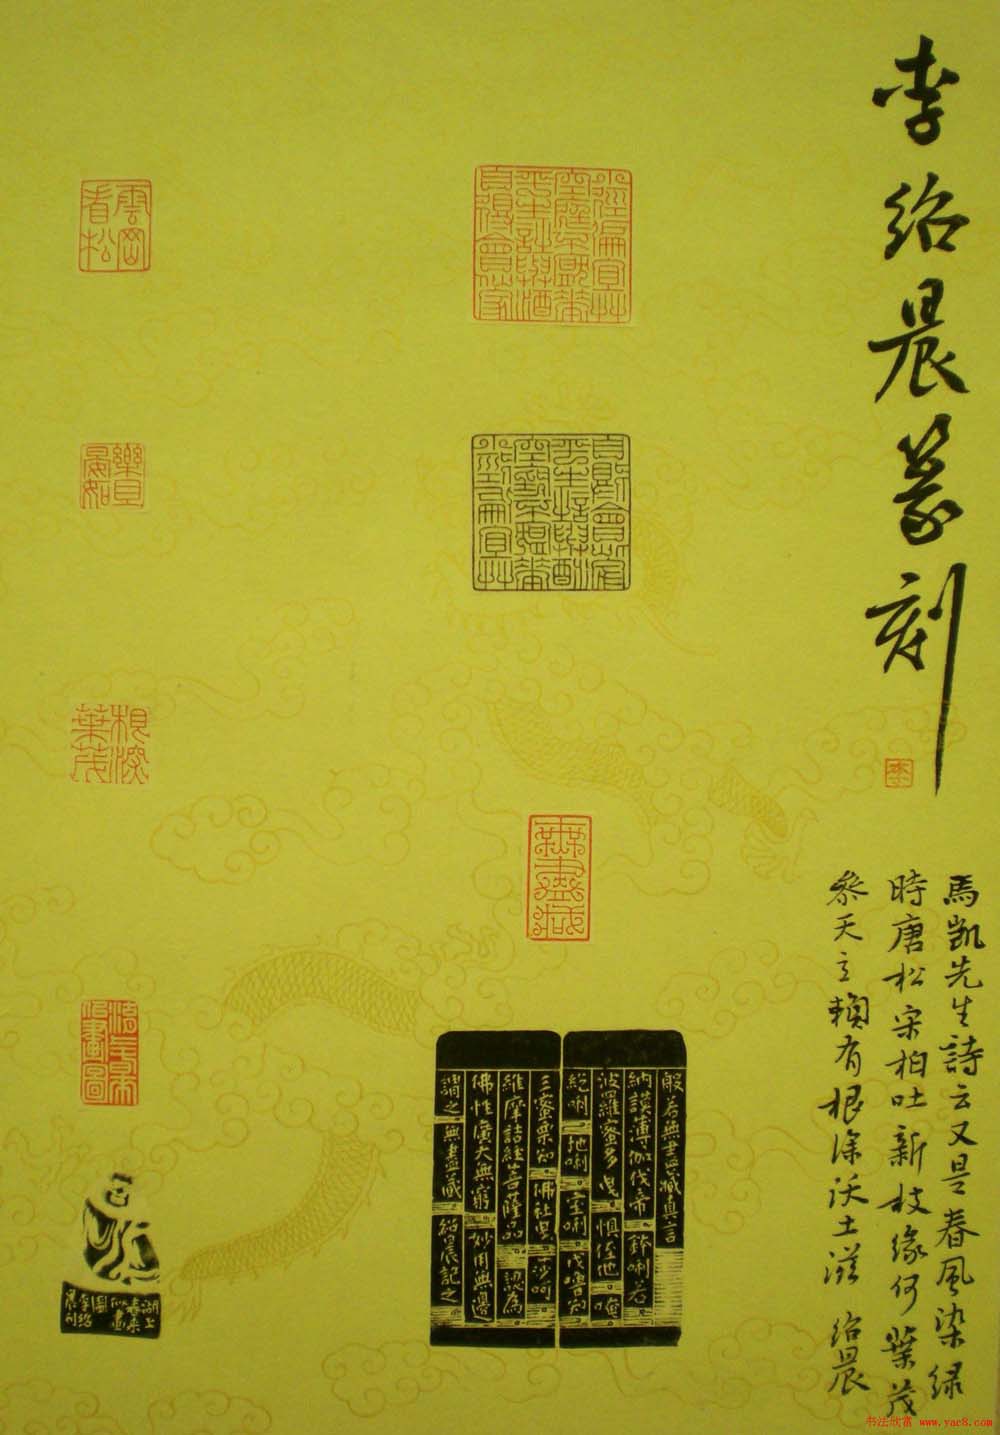 李紹晨篆刻
李
馬凱先生詩云又是春風染绿
時唐松宋柏吐新枝缘何葉茂
參天立賴有根深沃土滋 紹晨
無盡藏
般若無盡藏真言
納謨薄伽伐帝 鉢唎若
波羅蜜多曳 怛侄他 唵
紇唎 地唎 室唎 戍嚕知
三蜜栗知 佛社曳 莎呵
維摩詰經菩薩品 認為
佛性廣大無窮 妙用無邊
謂之無盡藏 紹晨記之
雲岡
看松
晏如
根深
葉茂
畫圖
湖上
春来
似畫
圖
李紹
晨刊
书法欣赏 www.yac8.com